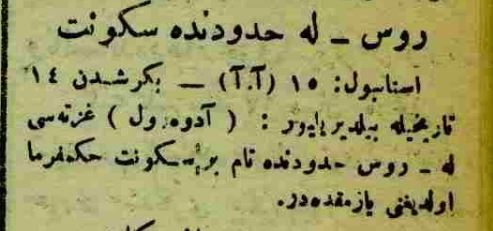 روس ـ له حدودنده سکونت
استانبول: ١٥ (آ.آ) — بکرشدن ١٤
تاریخیله بیلدیریلیور: (آدوه‌رول) غزته‌سی
له ـ روس حدودنده تام بر سکونت حکمفرما
اولدیغنی یازمقده‌در.